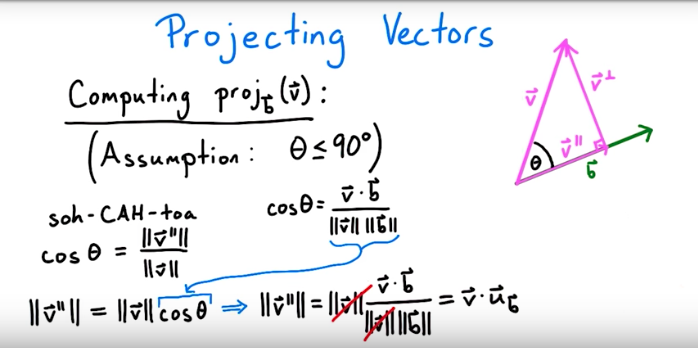 Projecting Vectors
Computing proj_b⃗(v⃗):
(Assumption: θ ≤ 90°)
soh-CAH-toa
cos θ = ‖v⃗ᴵᴵ‖ / ‖v⃗‖
cosθ = v⃗ · b⃗ / ‖v⃗‖ ‖b⃗‖
‖v⃗ᴵᴵ‖ = ‖v⃗‖ cosθ ⇒ ‖v⃗ᴵᴵ‖ = ‖v⃗‖ v⃗ · b⃗ / ‖v⃗‖ ‖b⃗‖ = v⃗ · u⃗_b⃗
v⃗
v⃗⊥
θ
v⃗ᴵᴵ
b⃗